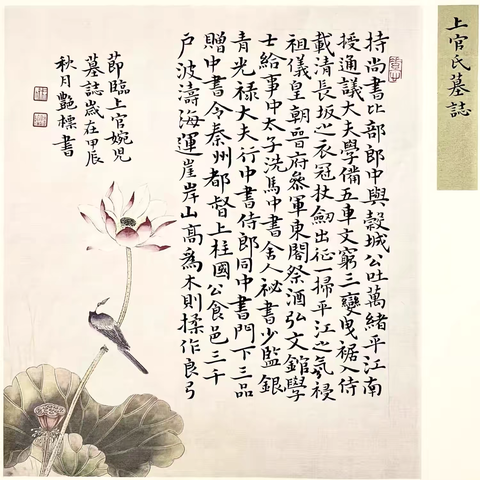 上官氏墓誌
持尚書比部郎中與穀城公吐萬緒平江南
授通議大夫學備五車文窮三變曳裾入侍
載清長坂之衣冠杖劒出征一掃平江之氛祲
祖儀皇朝晉府叅軍東閣祭酒弘文館學
士給事中太子洗馬中書舍人祕書少監銀
青光禄大夫行中書侍郎同中書門下三品
贈中書令秦州都督上柱國公食邑三千
戶波濤海運崖岸山高爲木則揉作良弓
節臨上官婉兒
墓誌歲在甲辰
秋月艷標書